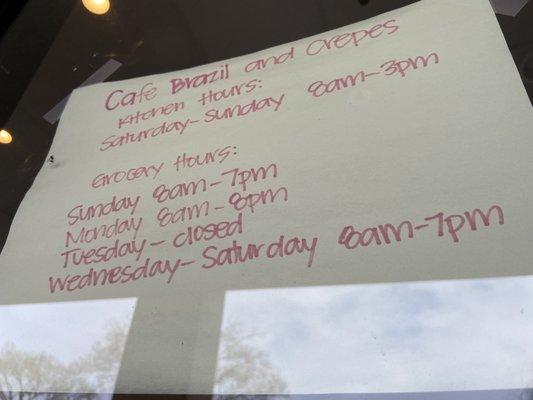 Cafe Brazil and Crepes
Kitchen Hours:
Saturday-Sunday 8am-3pm
Grocery Hours:
Sunday 8am-7pm
Monday 8am-8pm
Tuesday-closed
Wednesday-Saturday 8am-7pm